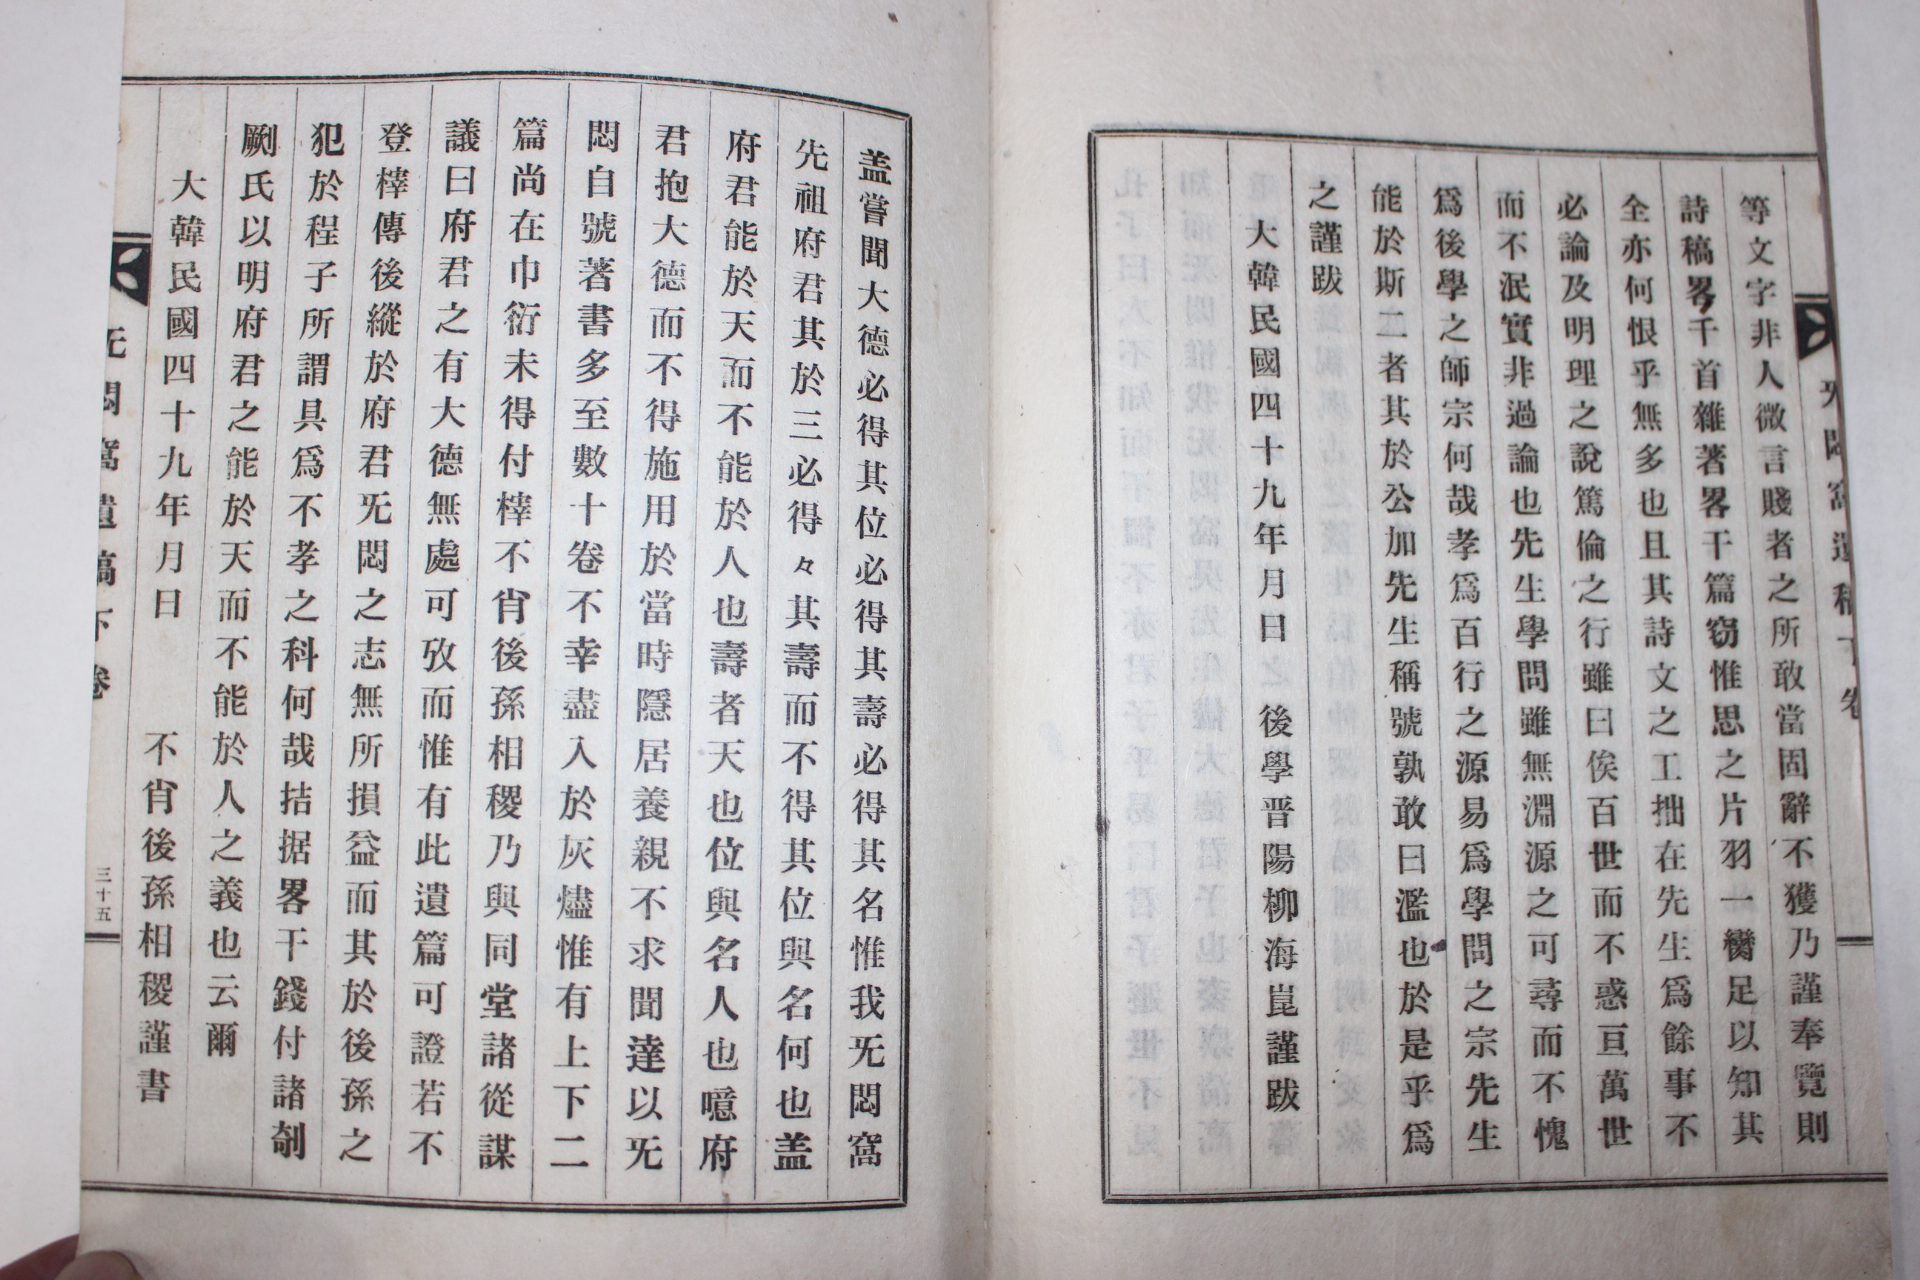 等文字非人微言賤者之所敢當固辭不獲乃謹奉覽則
詩稿畧千首雜著畧干篇窃惟思之片羽一臠足以知其
全亦何恨乎無多也且其詩文之工拙在先生爲餘事不
必論及明理之說篤倫之行雖曰俟百世而不惑亘萬世
而不泯實非過論也先生學問雖無淵源之可尋而不愧
爲後學之師宗何哉孝爲百行之源易爲學問之宗先生
能於斯二者其於公加先生稱號孰敢曰濫也於是乎爲
之謹跋
大韓民國四十九年月日 後學晋陽柳海崑謹跋
盖嘗聞大德必得其位必得其壽必得其名惟我旡悶窩
先祖府君其於三必得々其壽而不得其位與名何也盖
府君能於天而不能於人也壽者天也位與名人也噫府
君抱大德而不得施用於當時隱居養親不求聞達以旡
悶自號著書多至數十卷不幸盡入於灰燼惟有上下二
篇尚在巾衍未得付榟不肖後孫相稷乃與同堂諸從謀
議曰府君之有大德無處可攷而惟有此遺篇可證若不
登榟傳後縱於府君旡悶之志無所損益而其於後孫之
犯於程子所謂具爲不孝之科何哉拮据畧干錢付諸剞
劂氏以明府君之能於天而不能於人之義也云爾
大韓民國四十九年月日 不肖後孫相稷謹書
旡悶窩遺稿下卷
三十五